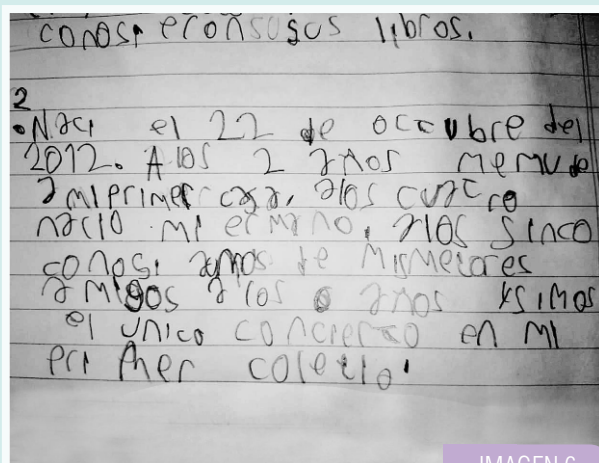 conosi eronsusus libros.
2
•Naci el 22 de occubre del
2012. A los 2 años memude
a mi primer casa, alos cuatro
nacio mi ermano, alos sinco
conosi unos de mismejores
amigos a los 6 años isimos
el unico concierto en mi
pri mer colegio
IMAGEN 6